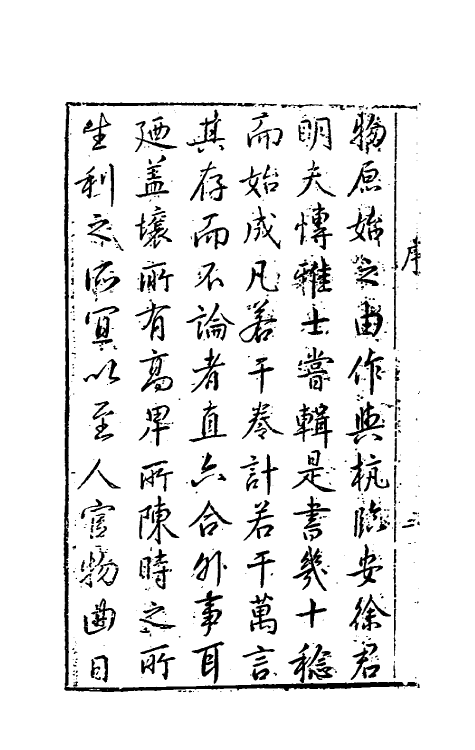 序
二
物原始之由作與杭臨安徐君
明夫博雅士嘗輯是書幾十稔
而始成凡若干卷計若干萬言
其存而不論者直六合外事耳
廼蓋壤所有高卑所陳時之所
生利之所冝以至人官物曲日